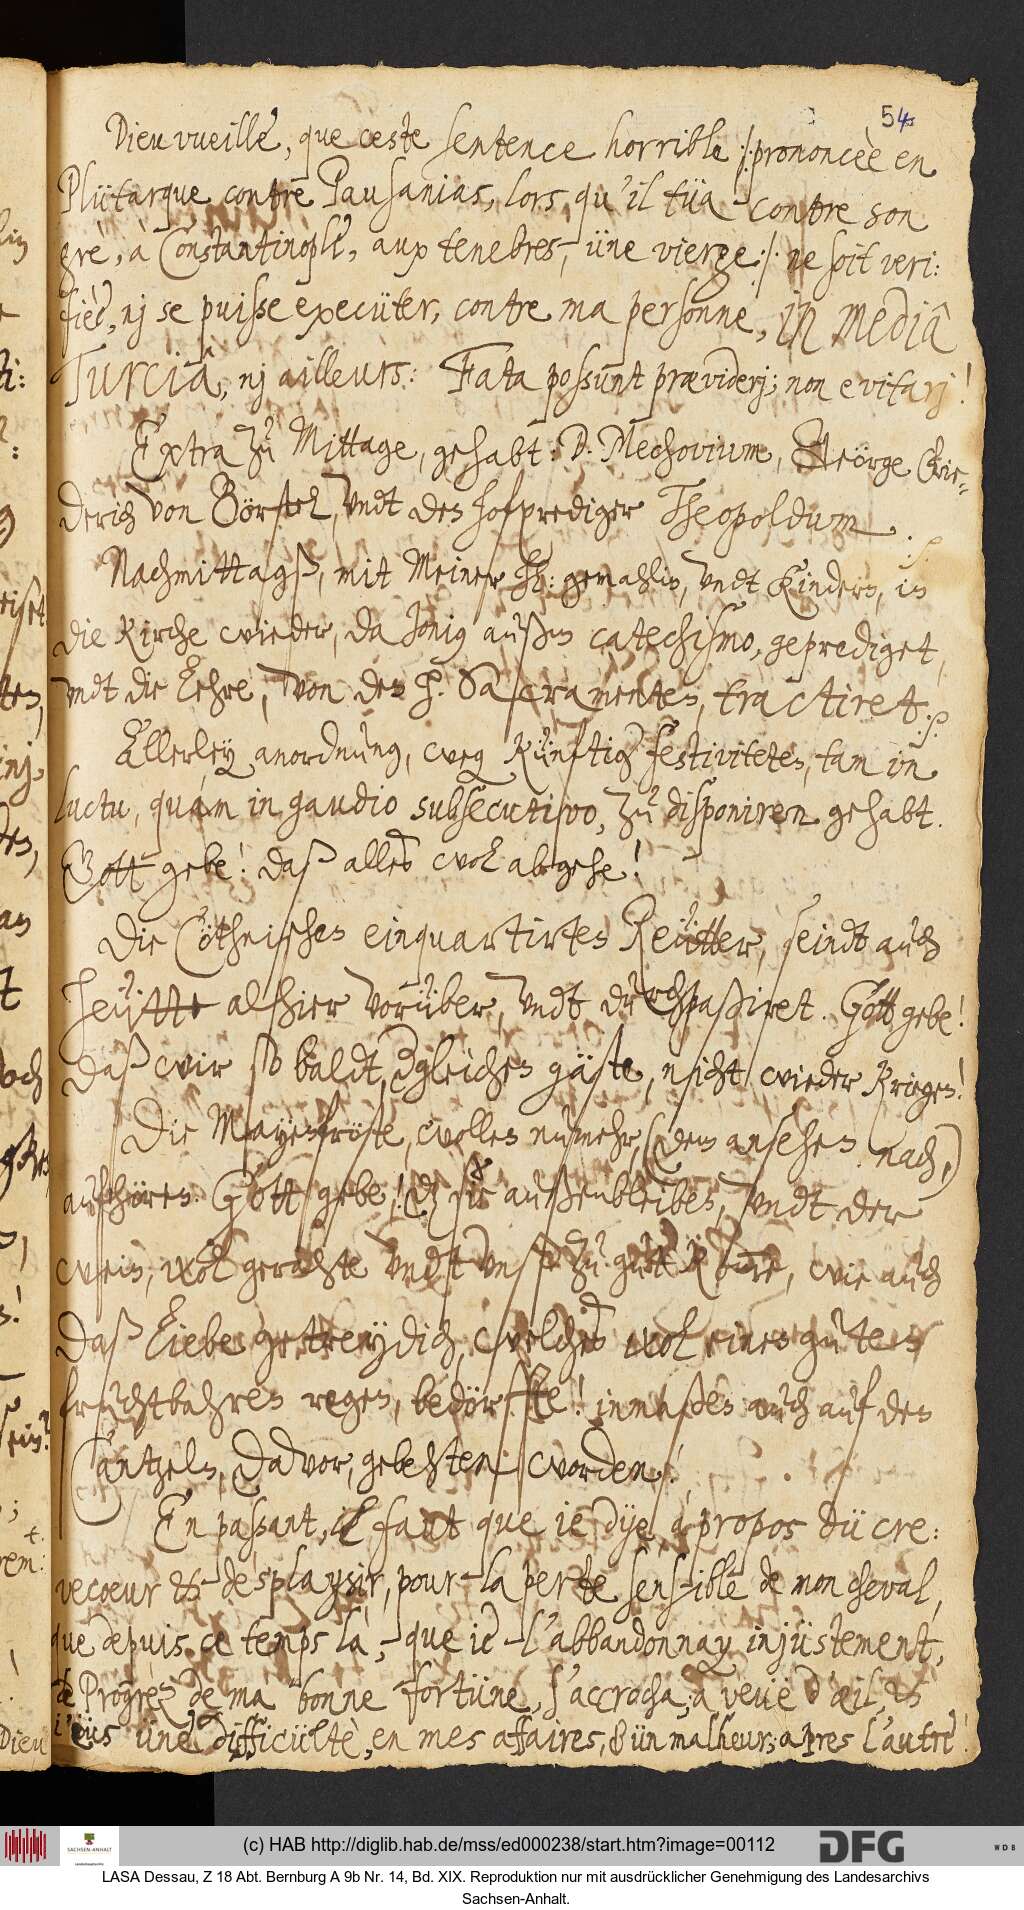 54
Dieu vueille, que ceste sentence horrible /: prononcèe en
Plütarque contre Pausanias, lors qu'il tüa contre son
grè, à Constantinople, aux tenebres, üne vierge :/ ne soit veri:
fièe, nj se puisse execüter, contre ma personne, in mediâ
Turciâ, nj ailleurs: Fata possunt præviderj; non evitarj!
Extra zu Mittage, gehabt: D. Mechovium, George Frie-
derich von Börstel, vndt den hofprediger Theopoldum.
Nachmittagß, mit Meiner Fr: gemahlin, vndt Kindern, in
die Kirche wieder, da Jonig außm catechismo, geprediget,
vndt die Lehre, von den h. Sacramenten, tractiret.
Allerley anordnung, weg künftig festiviteten, tam in
luctu, quàm in gaudio subsecutivo, zu disponiren gehabt.
Gott gebe! daß alles wol abgehe!
Die Cöthnischen einquartirten Reütter, seindt auch
heütte alhier vorüber, vndt durchpaßiret. Gott gebe!
daß wir so baldt, dgleichen gäste, nicht wieder kriegen!
Die Mayenfröste, wollen numehr, (dem ansehen nach,)
aufhören. Gott gebe! dz sie außenbleiben, vndt der
wein, wol gerahte vndt vnß zu gutt kom̅e, wie auch
daß liebe getreydich, welches wol eines guten
fruchtbahren regen, bedörfte! inmaßen auch auf den
Cantzeln, davor, gebehten worden.
En passant, il faut que ie dye, à propos dü cre:
vecoeur & desplaysir, pour la perte sensible de mon cheval,
que depuis ce temps là, que ie l'abbandonnay injüstement,
le Progrez de ma bonne fortüne, s'accrocha, à veuë d'œil, &
i'eüs üne difficültè, en mes affaires, & ün malheur; apres l'autre!
(c) HAB http://diglib.hab.de/mss/ed000238/start.htm?image=00112
DFG
WDB
SACHSEN-ANHALT
LASA Dessau, Z 18 Abt. Bernburg A 9b Nr. 14, Bd. XIX. Reproduktion nur mit ausdrücklicher Genehmigung des Landesarchivs
Sachsen-Anhalt.